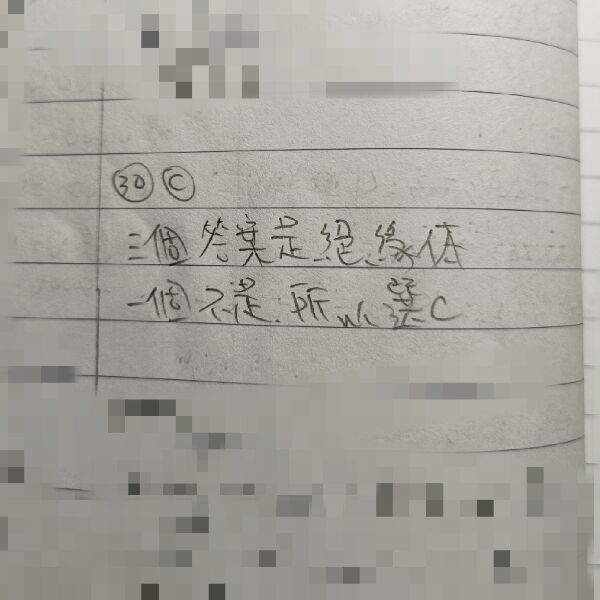 ㉚ Ⓒ
三個答案是絕緣体
一個不是所以選C